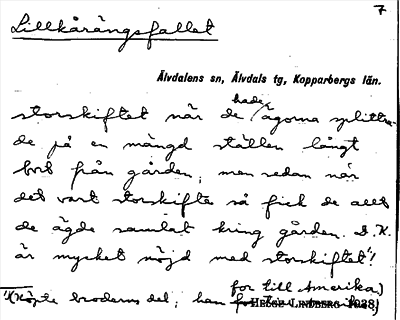 7
Lillkårängsfallet
Älvdalens sn, Älvdals tg, Kopparbergs län.
hade
storskiftet när de ägorna splittra-
de på en mängd ställen långt
bort från gården, men sedan när
det vart storskifte så fick de allt
de ägde samlat kring gården. D.K.
är mycket nöjd med storskiftet"!
for till Amerika)
1(Köpte broderns del, han
HELGE LINDBERG 1938